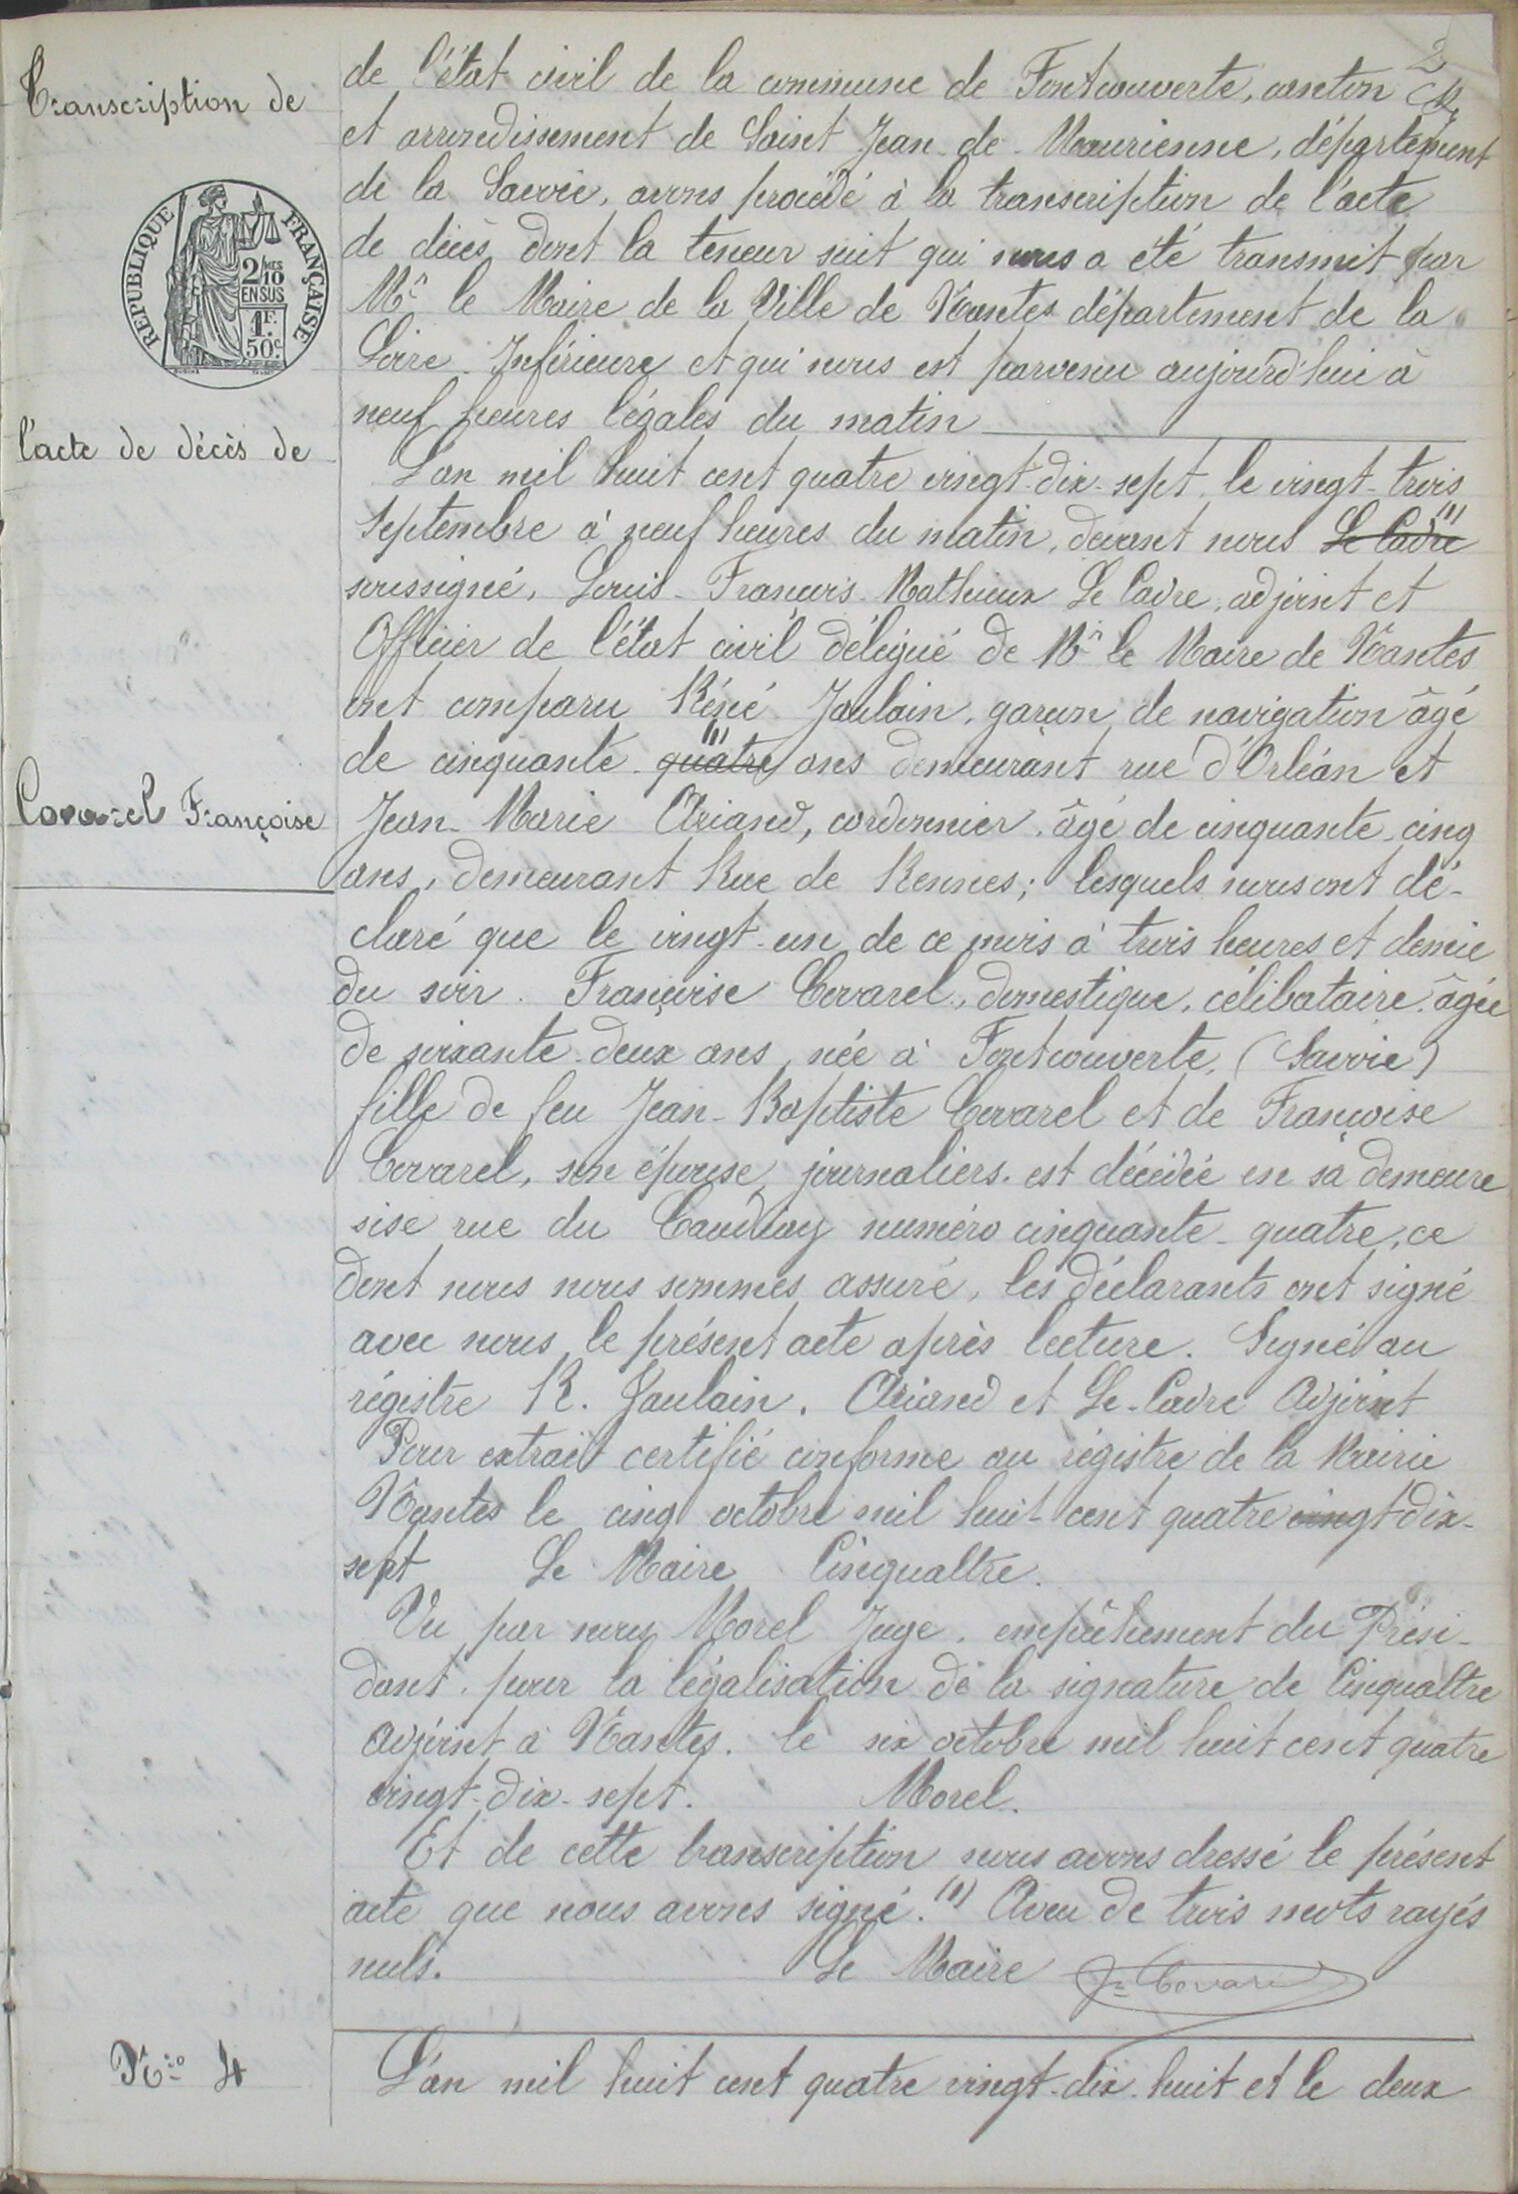 2
Transcription de
RÉPUBLIQUE FRANÇAISE
2/10MES
EN SUS
1F.
50c.
l'acte de décès de
Covarel Françoise
de l'état civil de la commune de Fontcouverte, canton
et arrondissement de Saint Jean-de-Maurienne, département
de la Savoie, avons procédé à la transcription de l'acte
de décès dont la teneur suit qui nous a été transmit par
Mr le Maire de la Ville de Nantes département de la
Loire Inférieure et qui nous est parvenu aujourd'hui à
neuf heures légales du matin
L'an mil huit cent quatre vingt-dix-sept, le vingt-trois
Septembre à neuf heures du matin, devant nous Le Cadre (1)
soussigné, Louis-François-Mathieux Le Cadre, adjoint et
Officier de l'état civil délégué de Mr le Maire de Nantes
ont comparu Réné Jaulain, garçon de navigation âgé
de cinquante-quatre (1) ans demeurant rue d'Orléan et
Jean-Marie Oriand, cordonnier, âgé de cinquante-cinq
ans, demeurant Rue de Rennes; lesquels nous ont dé-
claré que le vingt-un de ce mois à trois heures et demie
du soir. Françoise Covarel, domestique, célibataire, âgée
de soixante-deux ans, née à Fontcouverte, (Savoie)
fille de feu Jean-Baptiste Covarel et de Françoise
Covarel, son épouse, journaliers. est décédée en sa demeure
sise rue du numéro cinquante-quatre, ce
dont nous nous sommes assuré, les déclarants ont signé
avec nous le présent acte après lecture. Signé au
régistre R. Jaulain. Oriand et Le-Cadre Adjoint
Pour extrait certifié conforme au régistre de la Mairie
Nantes le cinq octobre mil huit cent quatre vingt-dix-
sept Le Maire Cinqualtre.
Vu par nous Morel Juge, empêchement du Prési-
dant, pour la légalisation de la signature de Cinqualtre
adjoint à Nantes. le six octobre mil huit cent quatre
vingt-dix-sept. Morel.
Et de cette transcription nous avons dressé le présent
acte que nous avons signé. (1) Aveu de trois mots rayés
nuls. Le Maire Covarel
Nro 4
L'an mil huit cent quatre vingt-dix-huit et le deux